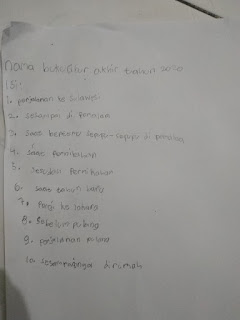 nama buku: libur akhir tahun 2020
isi:
1. perjalanan ke sulawesi
2. sesampai di
3. saat bertemu sepupu-sepupu di
4. saat pernikahan
5. sesudah pernikahan
6. saat tahun baru
7. Pergi ke
8. sebelum pulang
9. perjalanan pulang
10. sesampainya dirumah